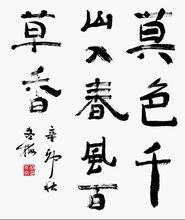 莫色千
山入春風百
草香
辛卯秋